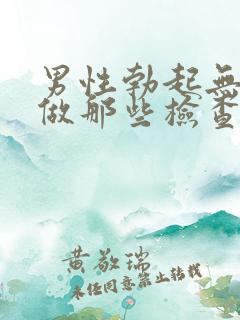 男性勃起無
做那些檢查
黄敬瑞
未经同意禁止转载